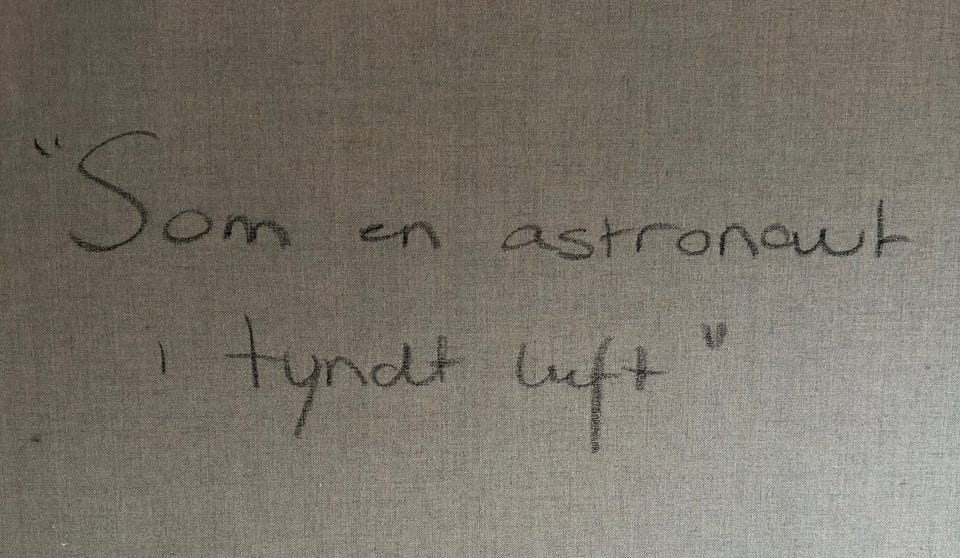 "Som en astronaut
i tyndt luft"